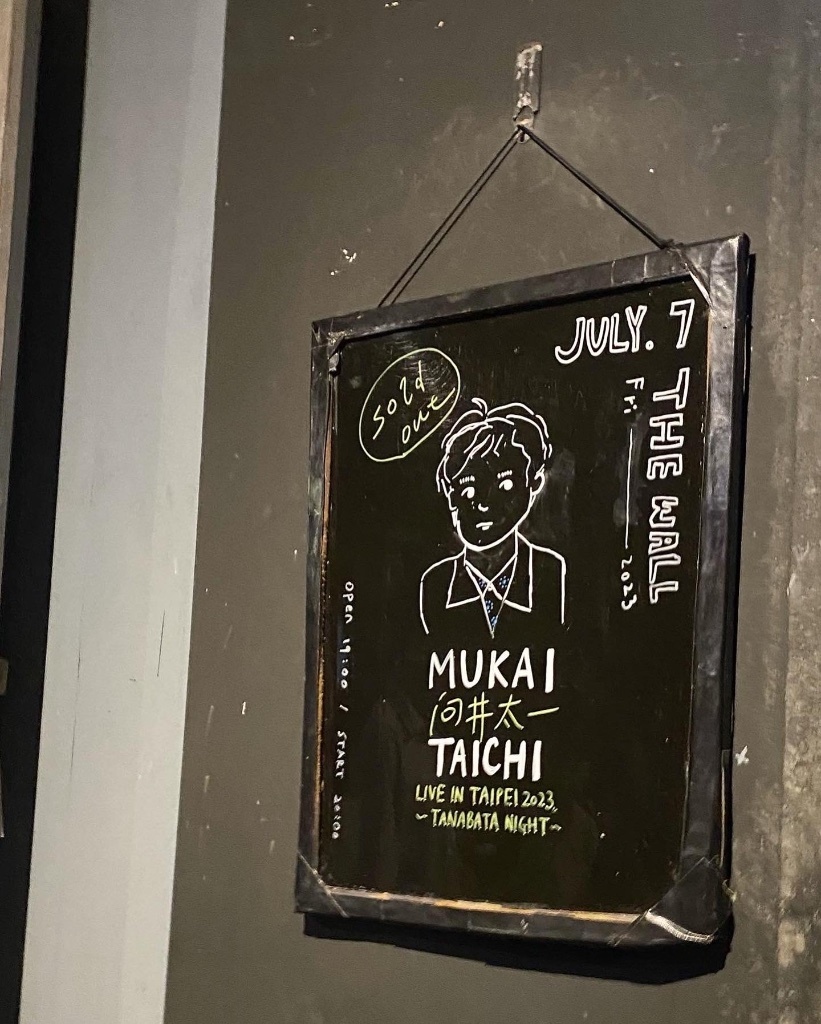 JULY. 7
THE WALL
Fri — 2023
Sold
out
MUKAI
向井太一
TAICHI
LIVE IN TAIPEI 2023
~TANABATA NIGHT~
OPEN 19:00 / START 20:00